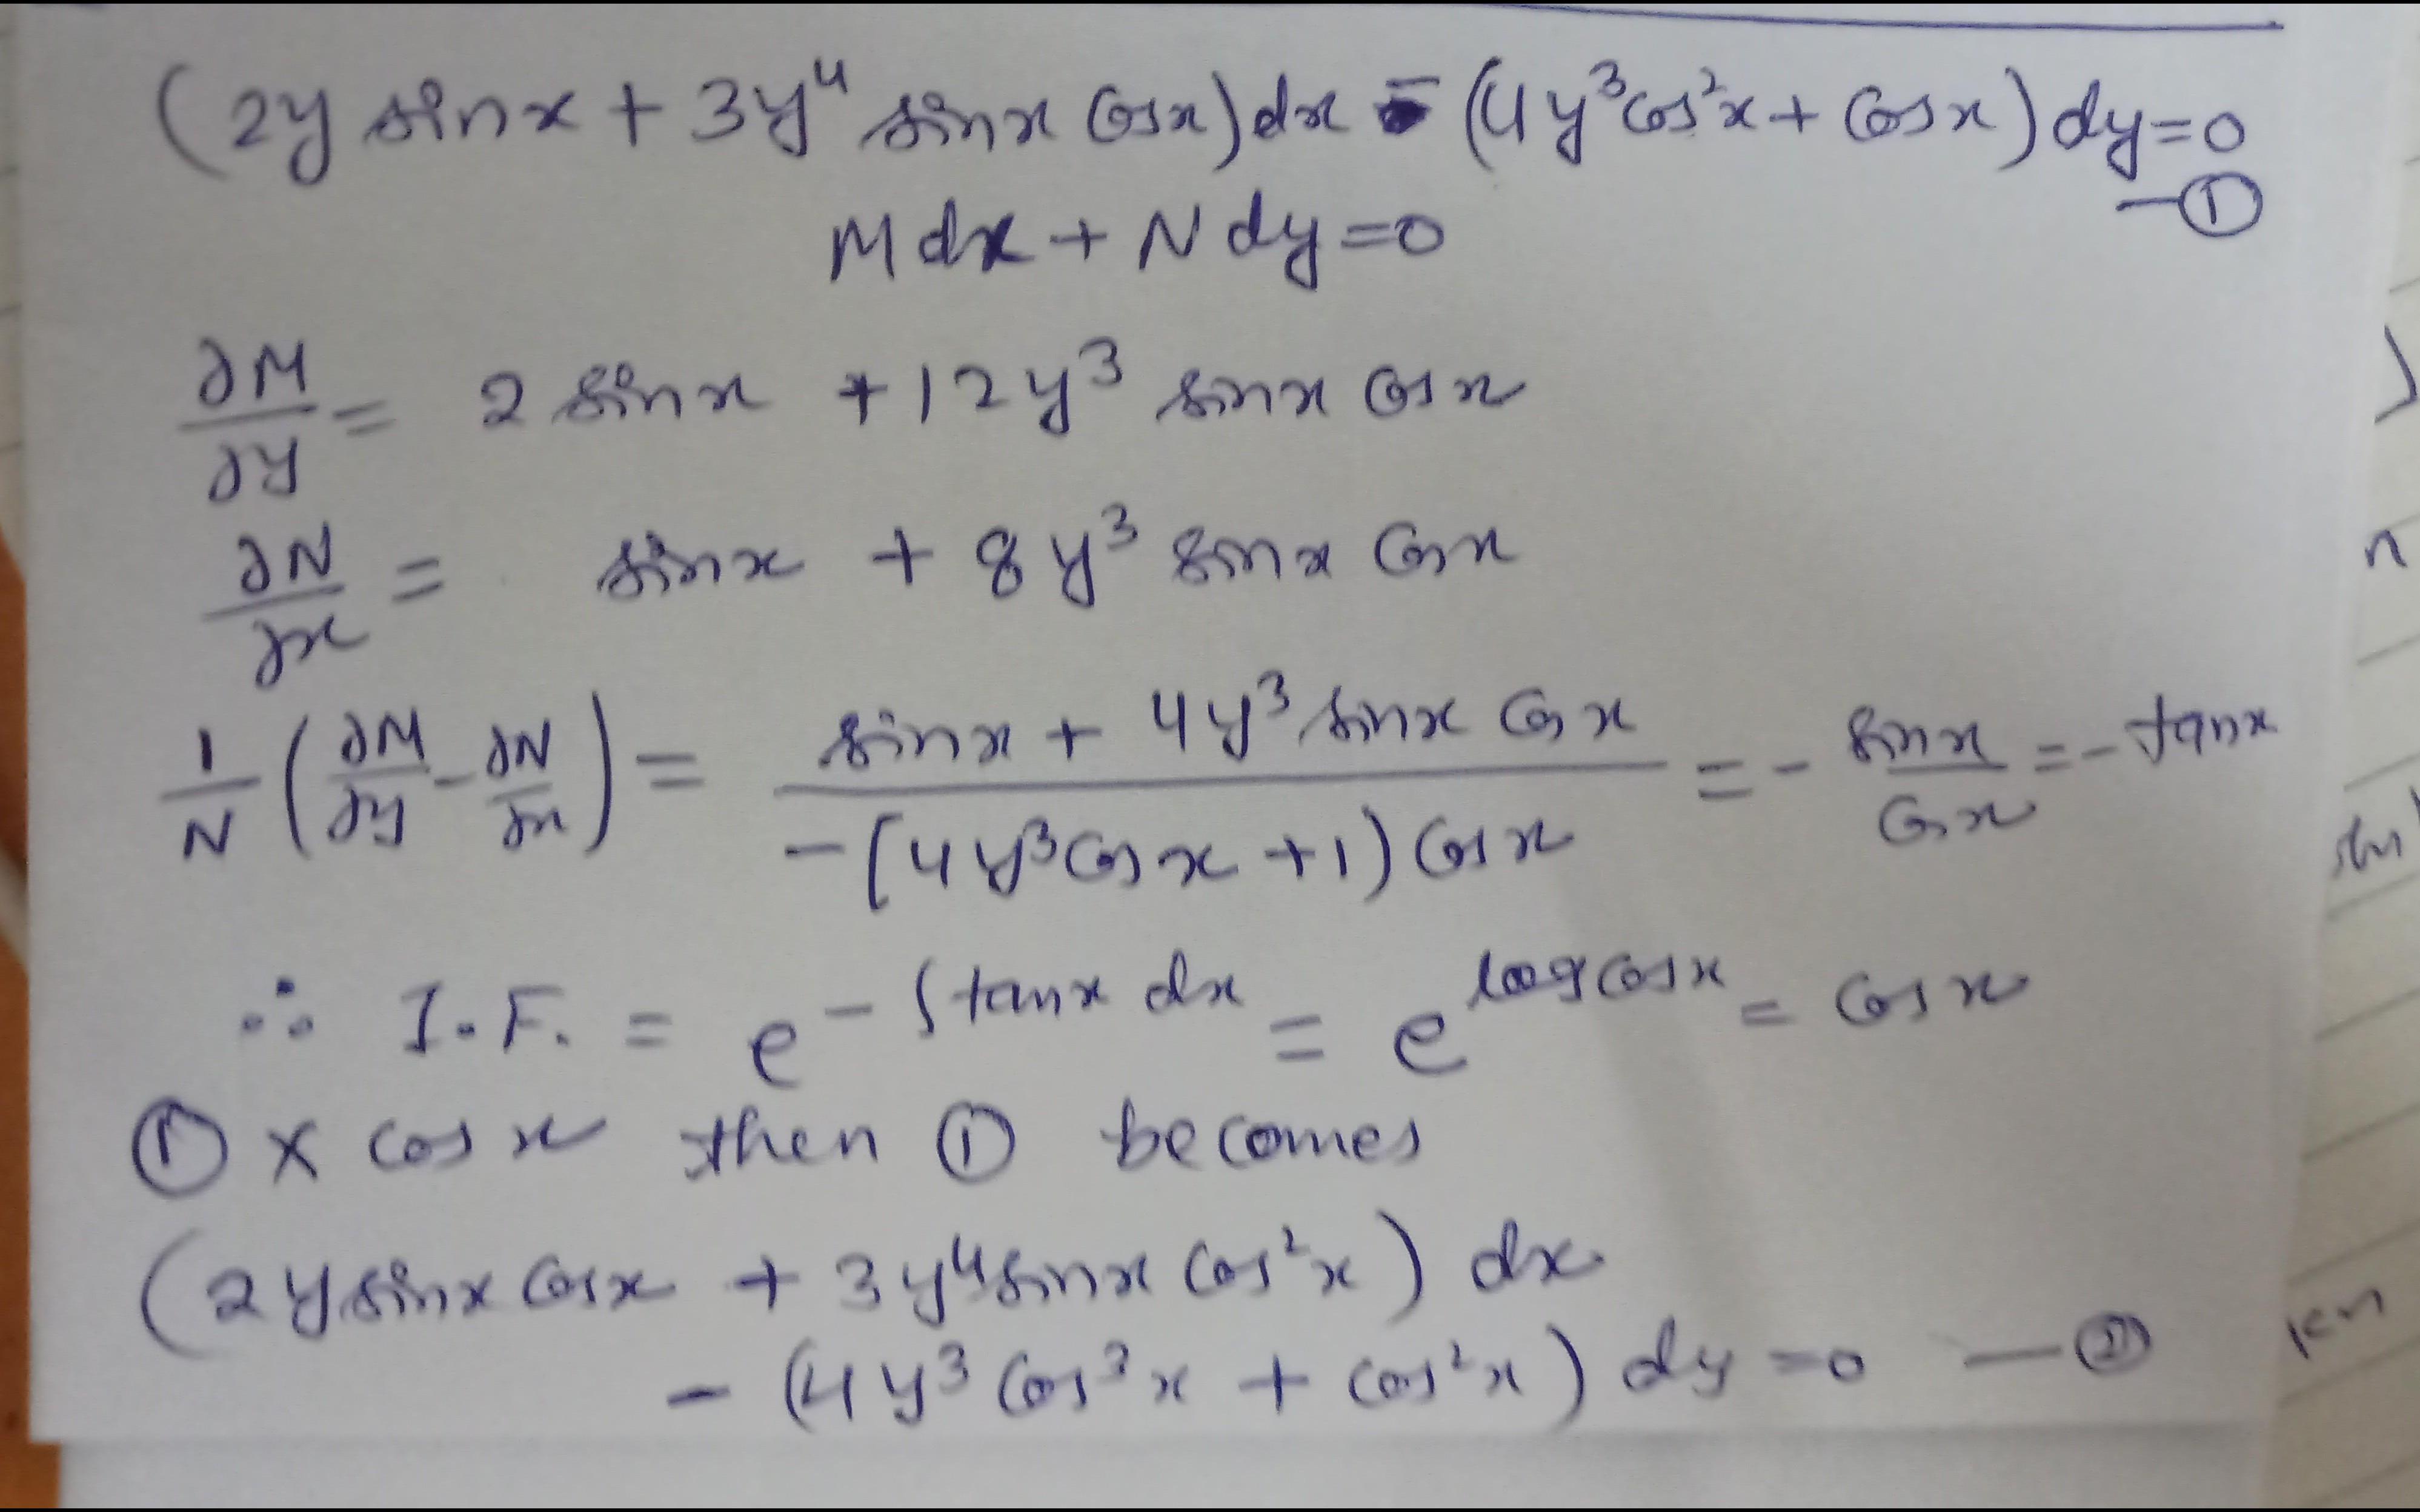 (2y sinx + 3y⁴ sinx cosx)dx - (4y³cos²x + cosx)dy=0
—①
Mdx + Ndy=0
∂M/∂y = 2 sinx + 12y³ sinx cosx
∂N/∂x = sinx + 8y³ sinx cosx
1/N (∂M/∂y - ∂N/∂x) = (sinx + 4y³ sinx cosx)/(-(4y³cosx +1) cosx) = - sinx/cosx = - tanx
∴ I.F. = e^(-∫tanx dx) = e^(log cosx) = cosx
① × cosx then ① becomes
(2y sinx cosx + 3y⁴sinx cos²x) dx
- (4y³ cos³x + cos²x) dy =0 —②